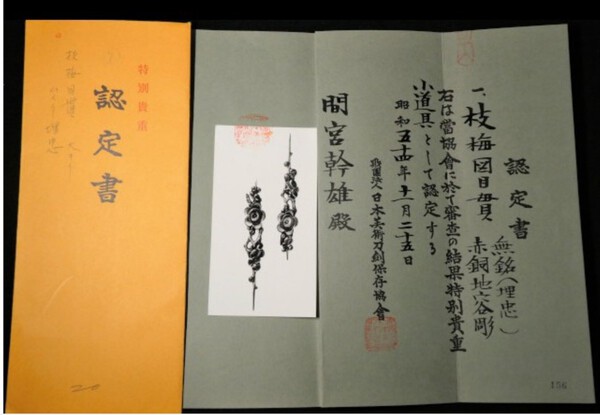 特別貴重
認定書
認定書
一、枝梅図目貫
無銘(埋忠)
赤銅地容彫
右は當協會に於て審査の結果特別貴重
小道具として認定する
昭和五十四年十一月二十五日
財團法人日本美術刀剣保存協會
間宮幹雄殿